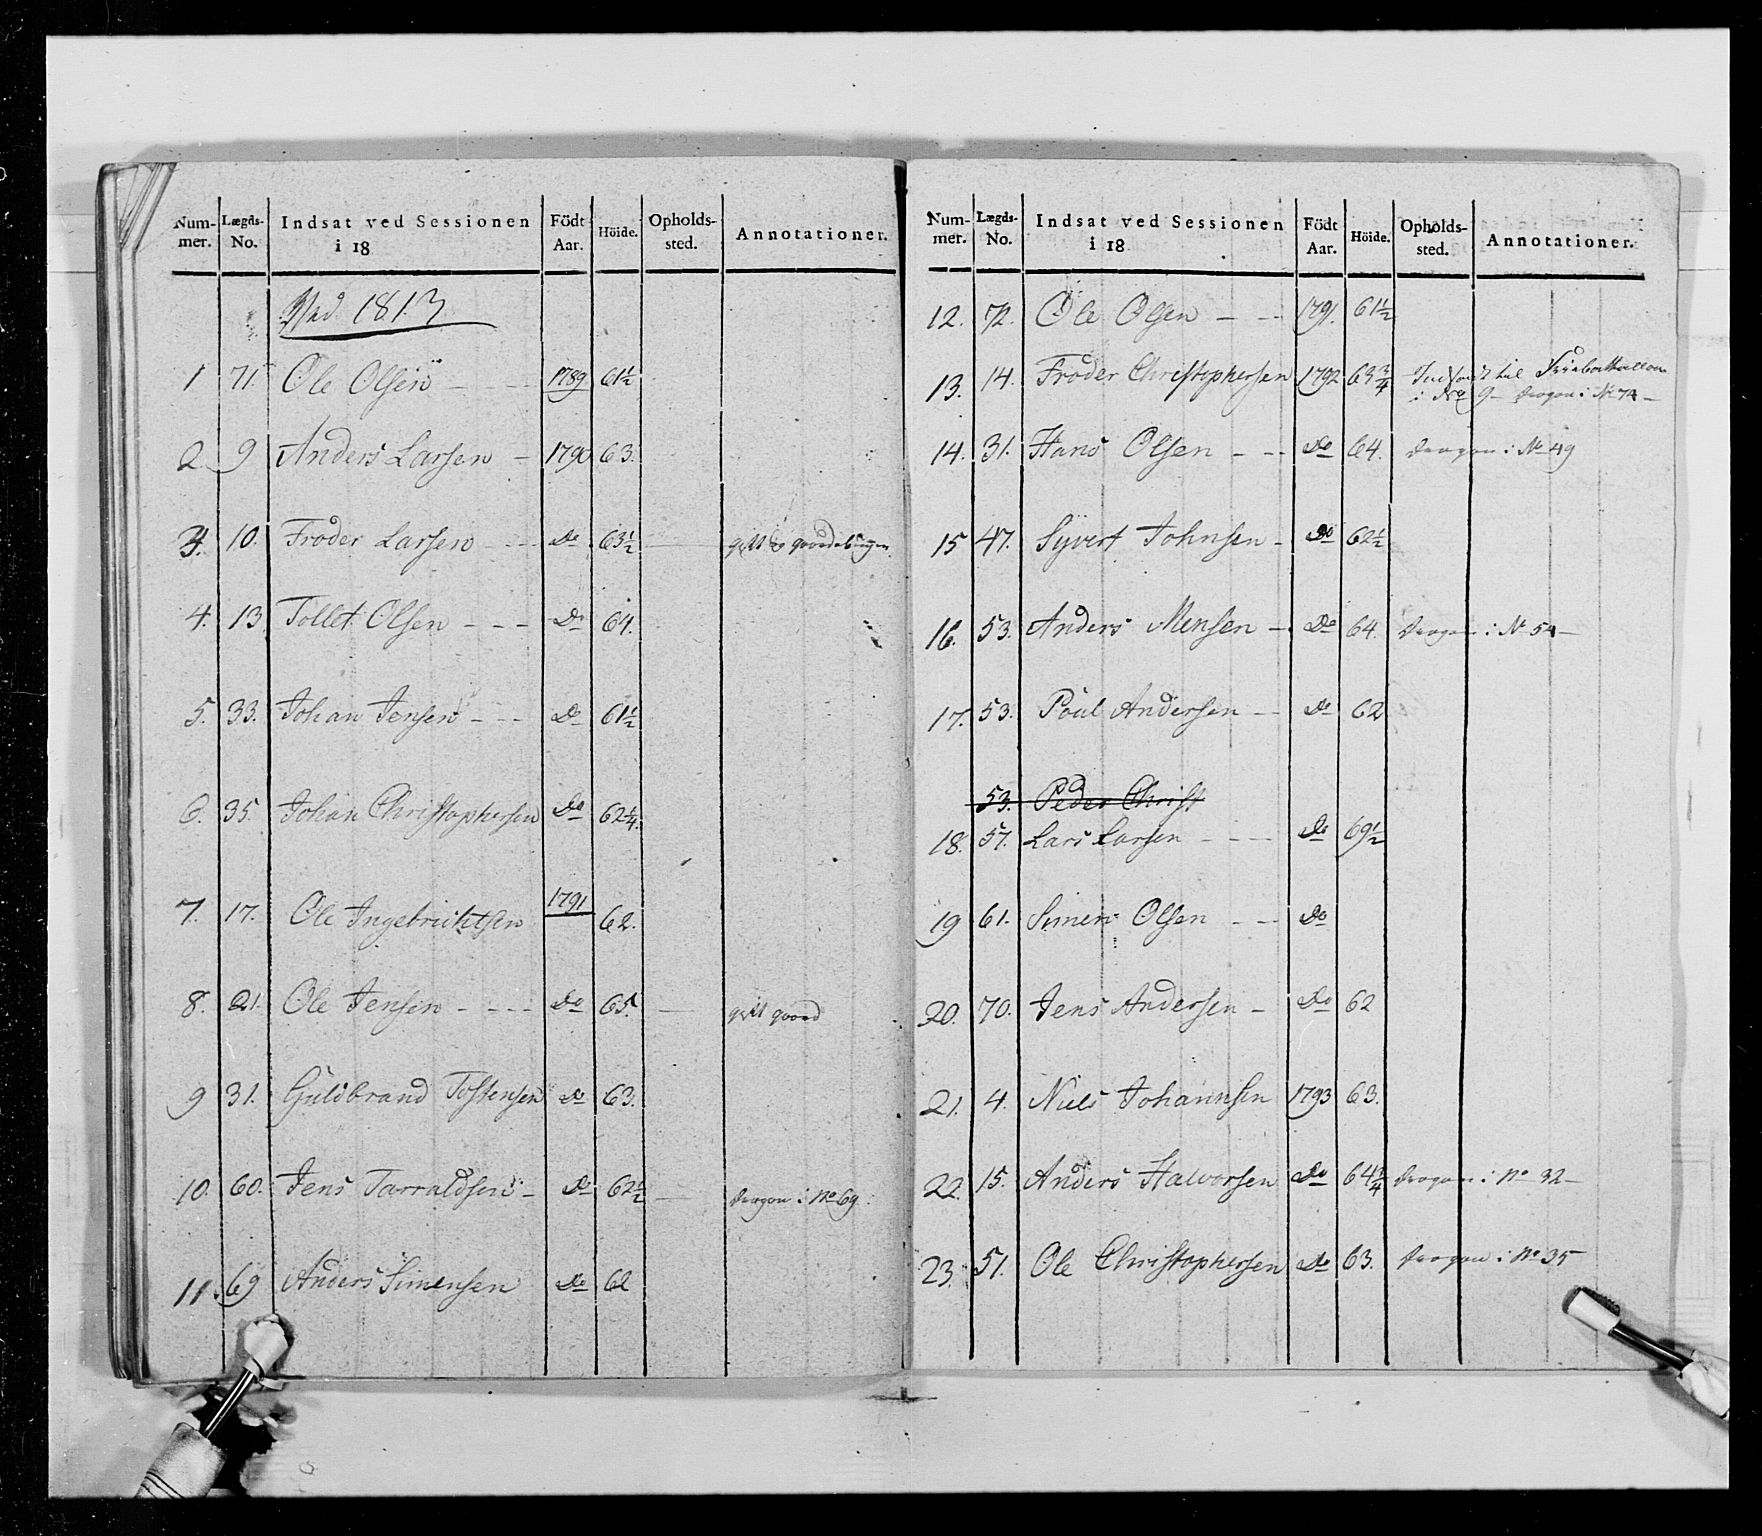 Num- Lægds- Indsat ved Sessionen Födt Höide. Opholds- Annotationer.
mer. No. i 18 Aar. sted.
Ved 1813
1 71. Ole Olsen - - 1789 61½
2 9 Anders Larsen - 1790 63.
3. 10. Froder Larsen - - Do 63½
4. 13 Tollef Olsen - - - Do 64.
5. 33. Johan Jensen - - - Do 61½
6. 35. Johan Christophersen Do 62¼.
7. 17. Ole Ingebrichtsen 1791 62.
8. 21. Ole Jensen - - - - Do 65. - gift gaard
9 31. Guldbrand Tostensen Do 63.
10. 60. Jens Tarraldsen - Do 62½ - Dragon i No 69
11. 69 Anders Simensen Do 62
Num- Lægds- Indsat ved Sessionen Födt Höide. Opholds- Annotationer.
mer. No. i 18 Aar. sted.
12. 72. Ole Olsen - - - 1791. 61½
13. 14. Froder Christophersen 1792 63¾ Indsat til
i 9 - Dragon i No 74 -
14. 31. Hans Olsen - - - Do 64. Dragon i No 49
15 47. Syvert Johnsen - Do 62½
16. 53. Anders Mensen - Do 64. Dragon i No 54 -
17. 53. Poul Andersen - - Do 62
53. Peder Christ
18. 57. Lars Larsen - - - - Do 69½
19 61. Simen Olsen - - - Do
20. 70. Jens Andersen - Do 62
21. 4. Niels Johannsen 1793 63.
22. 15. Anders Halvorsen Do 64¼ Dragon i No 32 -
23. 51. Ole Christophersen Do 63. Dragon i No 35